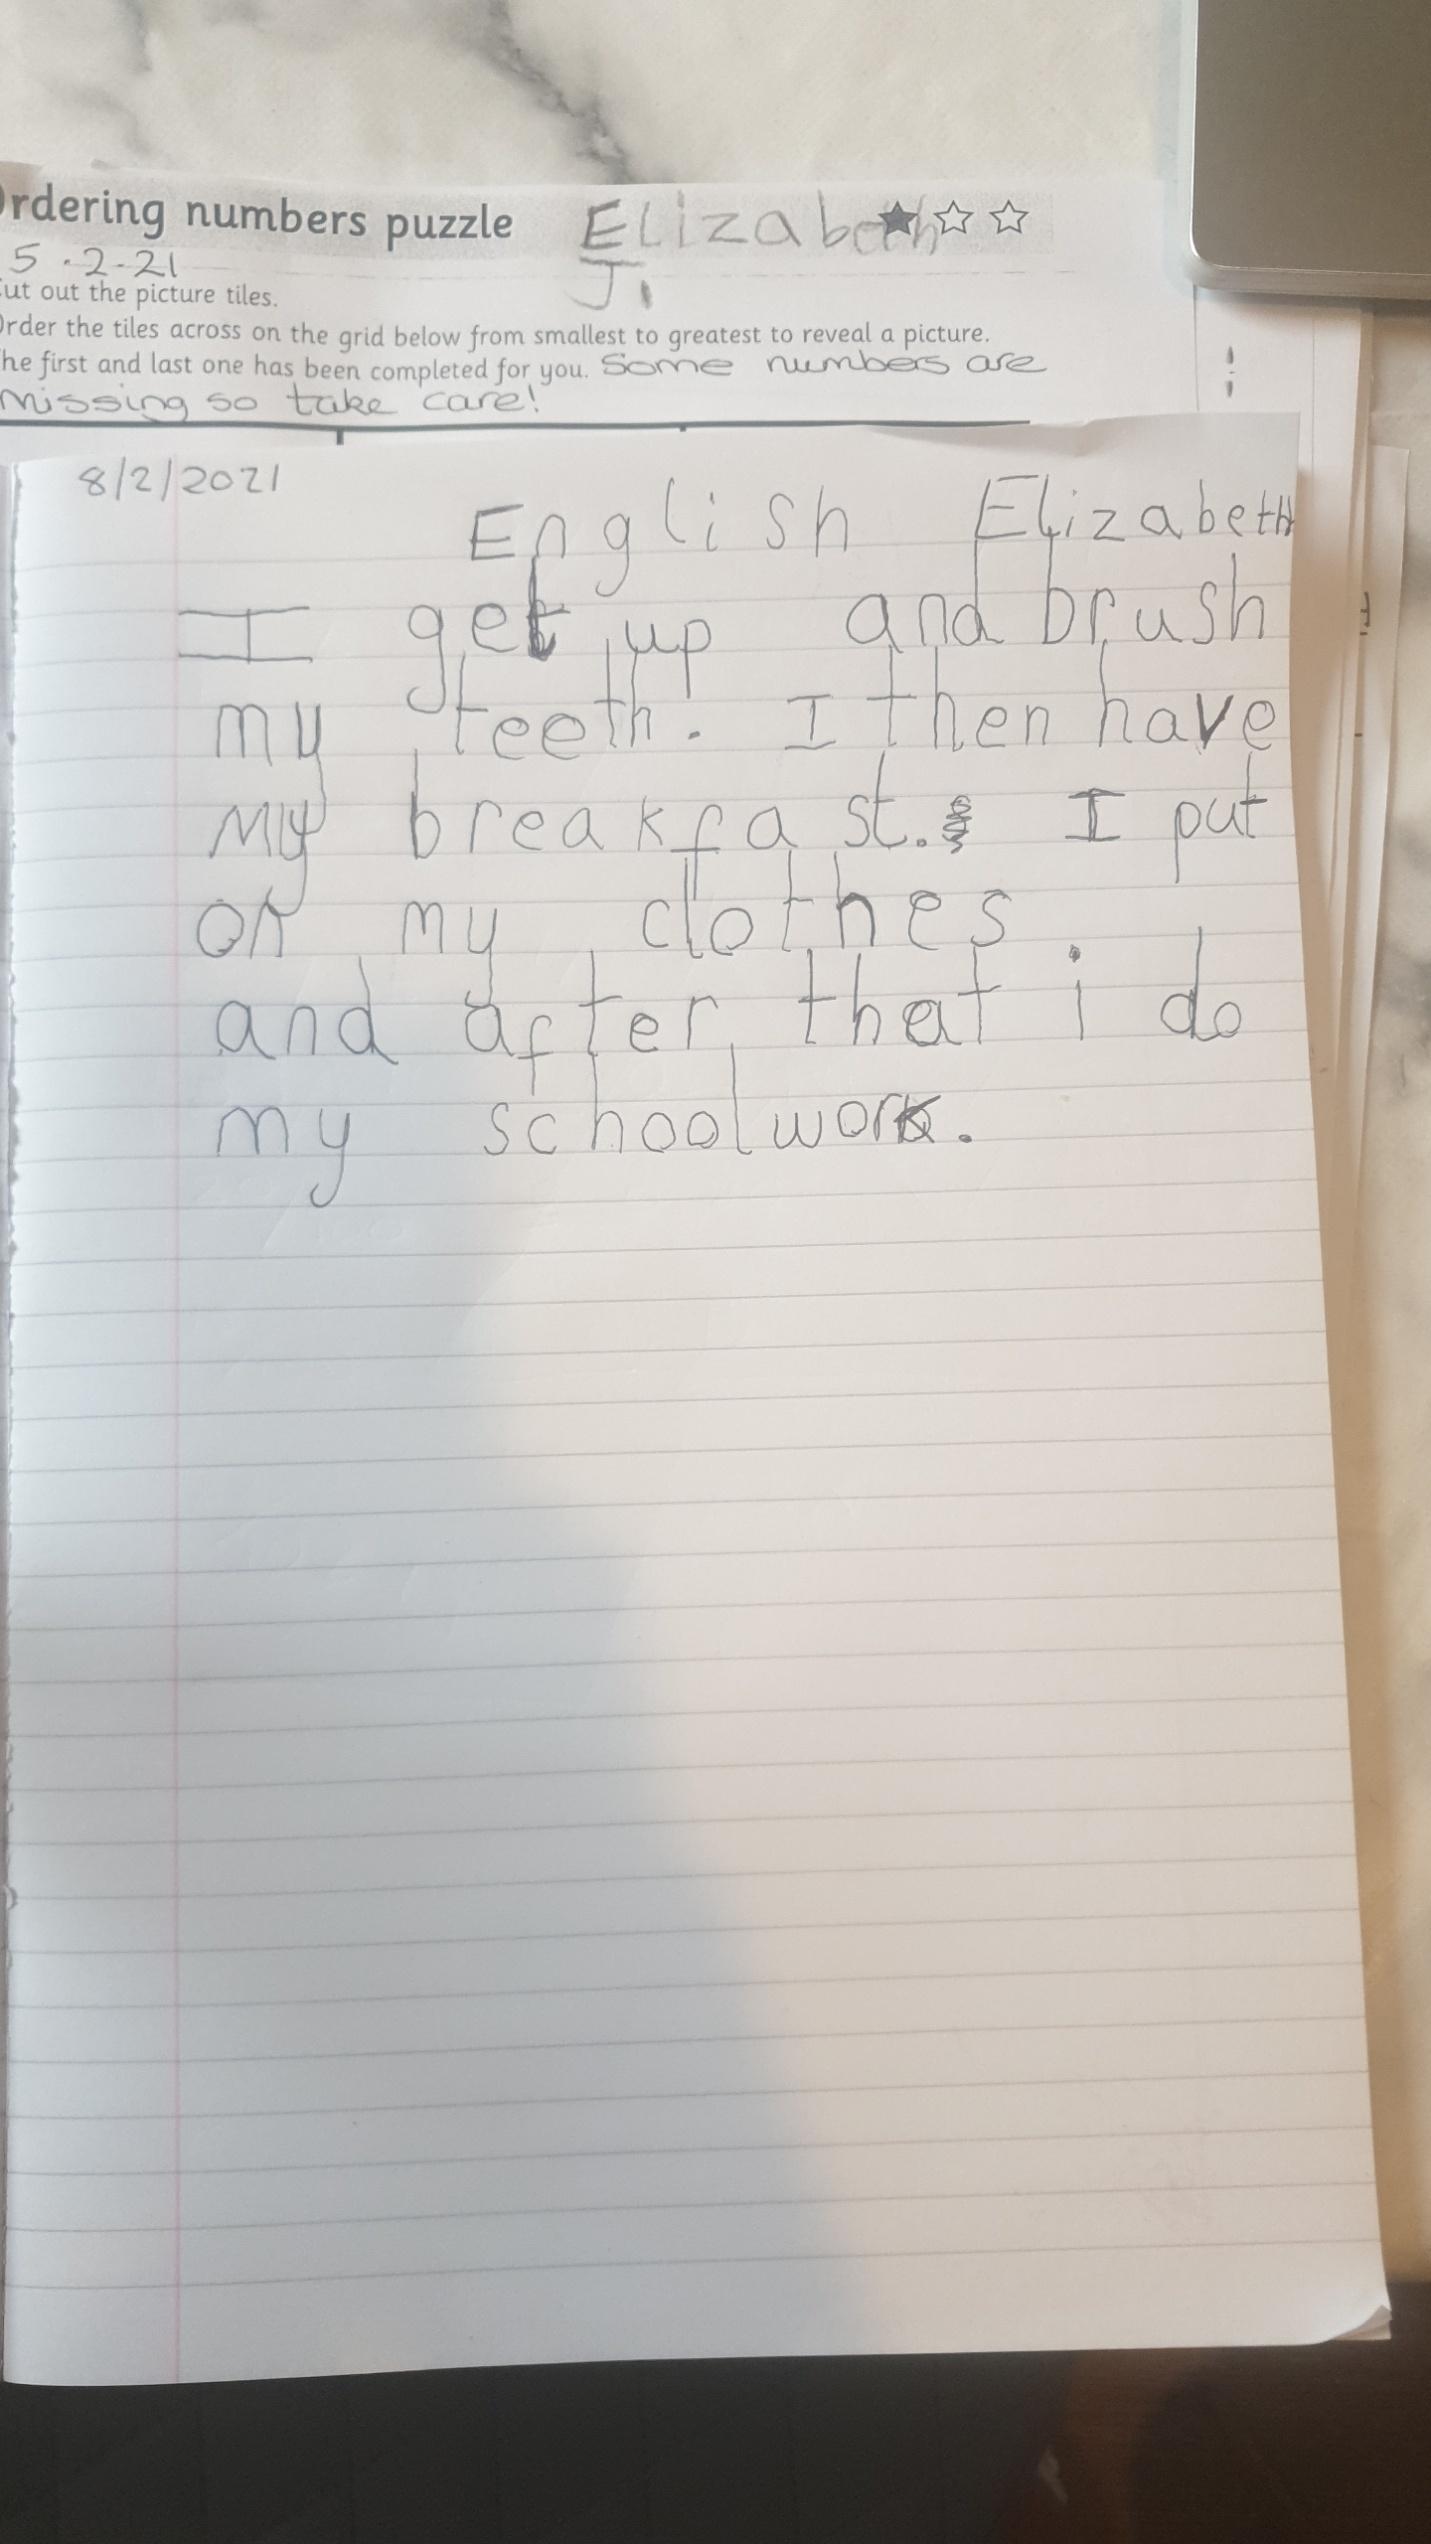 rdering numbers puzzle Elizabeth
5.2.21 J.
ut out the picture tiles.
rder the tiles across on the grid below from smallest to greatest to reveal a picture.
he first and last one has been completed for you. Some numbers are
missing so take care!
8/2/2021
English Elizabeth
I get up and brush
my teeth. I then have
my breakfast. I put
on my clothes
and after that i do
my schoolwork.